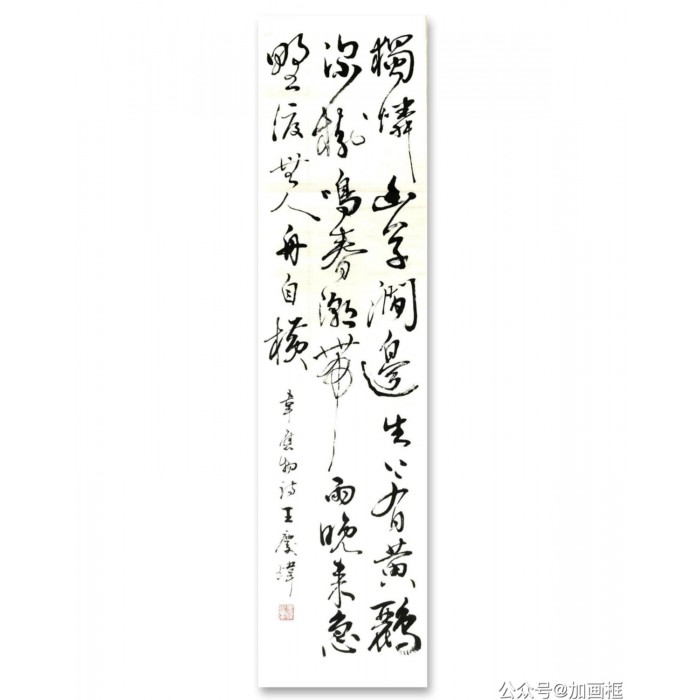 獨憐幽草澗邊生上有黃鸝
深樹鳴春潮帶雨晚來急
野渡無人舟自橫
韋應物詩王慶
公众号@加画框